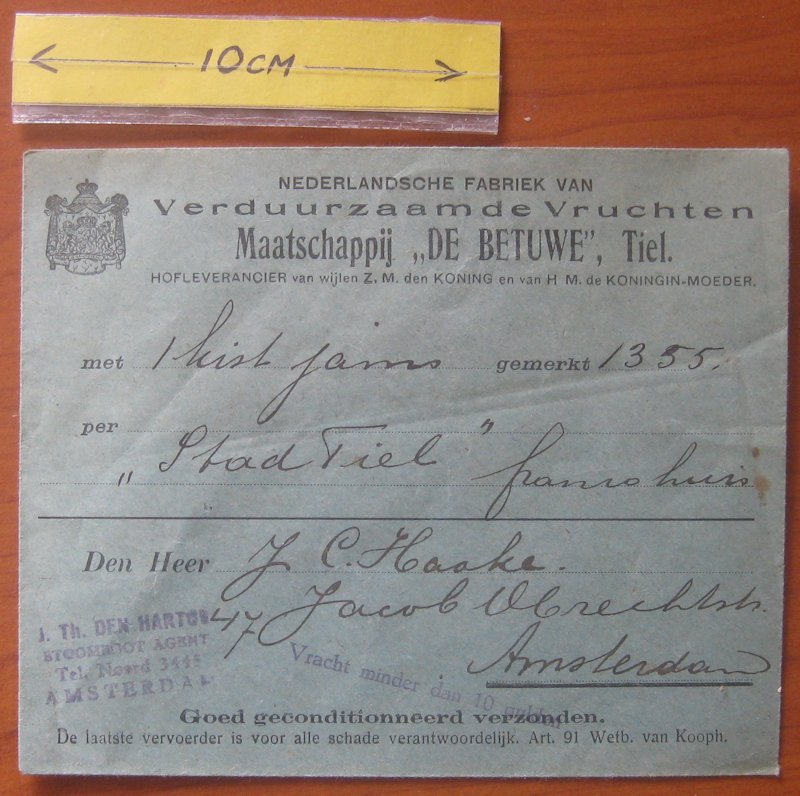 10CM
NEDERLANDSCHE FABRIEK VAN
Verduurzaamde Vruchten
Maatschappij „DE BETUWE”, Tiel.
HOFLEVERANCIER van wijlen Z. M. den KONING en van H M. de KONINGIN-MOEDER.
met 1 kist jams gemerkt 1355.
per
„Stad Tiel” franco huis
Den Heer J C. Haake.
47 Jacob Obrechtstr.
Amsterdam
J. Th. DEN HARTOG
STOOMBOOT AGENT
Tel. Noord 3445
AMSTERDAM
Vracht minder dan 10 gulden
Goed geconditionneerd verzonden.
De laatste vervoerder is voor alle schade verantwoordelijk. Art. 91 Wetb. van Kooph.